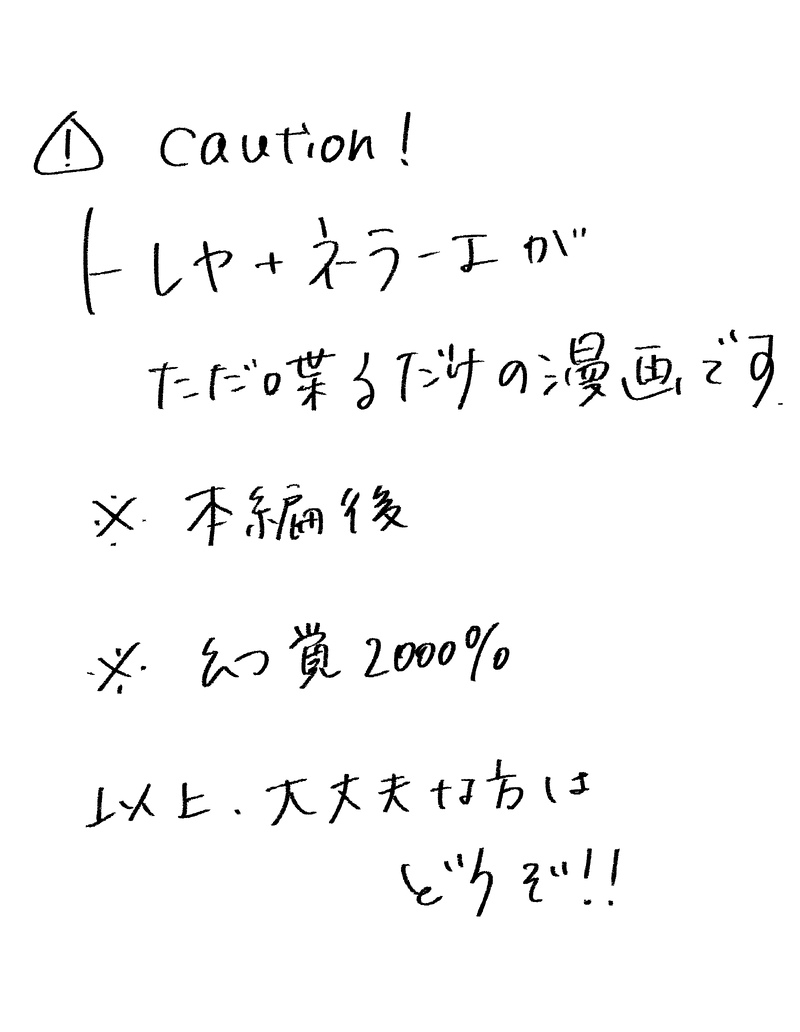 ⚠ Caution!
トレヤ+ネラーエが
ただ喋るだけの漫画です
※ 本編後
※ 幻覚2000%
以上、大丈夫な方は
どうぞ!!